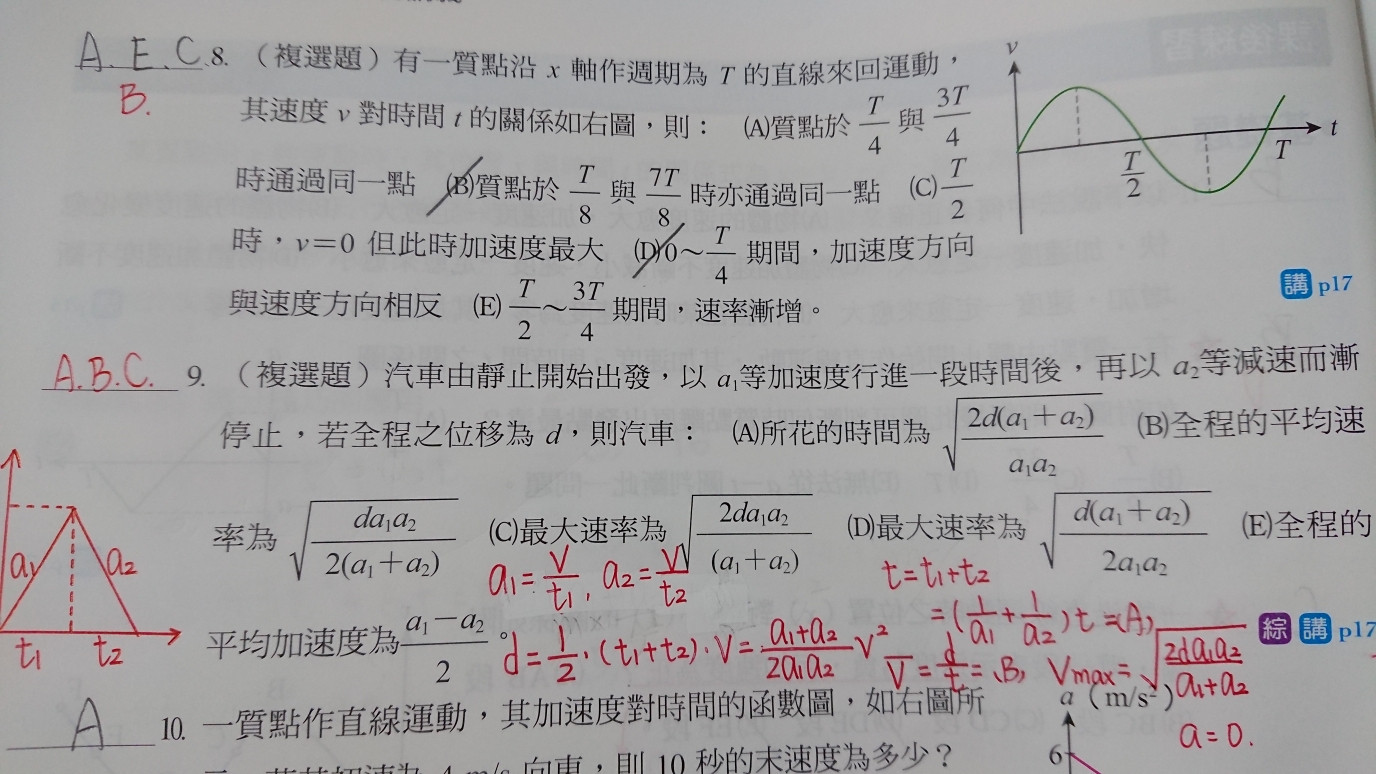 A. E. C 8. （複選題）有一質點沿 x 軸作週期為 T 的直線來回運動，
B. 其速度 v 對時間 t 的關係如右圖，則： (A)質點於 T/4 與 3T/4
時通過同一點 (B)質點於 T/8 與 7T/8 時亦通過同一點 (C) T/2
時，v＝0 但此時加速度最大 (D) 0～T/4 期間，加速度方向
與速度方向相反 (E) T/2～3T/4 期間，速率漸增。
v
T/2
T
t
講 p17
A.B.C. 9. （複選題）汽車由靜止開始出發，以 a₁等加速度行進一段時間後，再以 a₂等減速而漸
停止，若全程之位移為 d，則汽車： (A)所花的時間為 √(2d(a₁＋a₂)/a₁a₂) (B)全程的平均速
率為 √(da₁a₂/2(a₁＋a₂)) (C)最大速率為 √(2da₁a₂/(a₁＋a₂)) (D)最大速率為 √(d(a₁＋a₂)/2a₁a₂) (E)全程的
a₁ a₂
t₁ t₂
a₁=V/t₁, a₂=V/t₂
t=t₁+t₂
平均加速度為 (a₁－a₂)/2。
=(1/a₁+1/a₂)
d=1/2·(t₁+t₂)·V=(a₁+a₂)/(2a₁a₂) V²
V=d/t=(B), Vmax=√(2da₁a₂/(a₁+a₂))
綜 講 p17
a=0.
A 10. 一質點作直線運動，其加速度對時間的函數圖，如右圖所
a（m/s²）
6
4 m/s 向東，則 10 秒的末速度為多少？